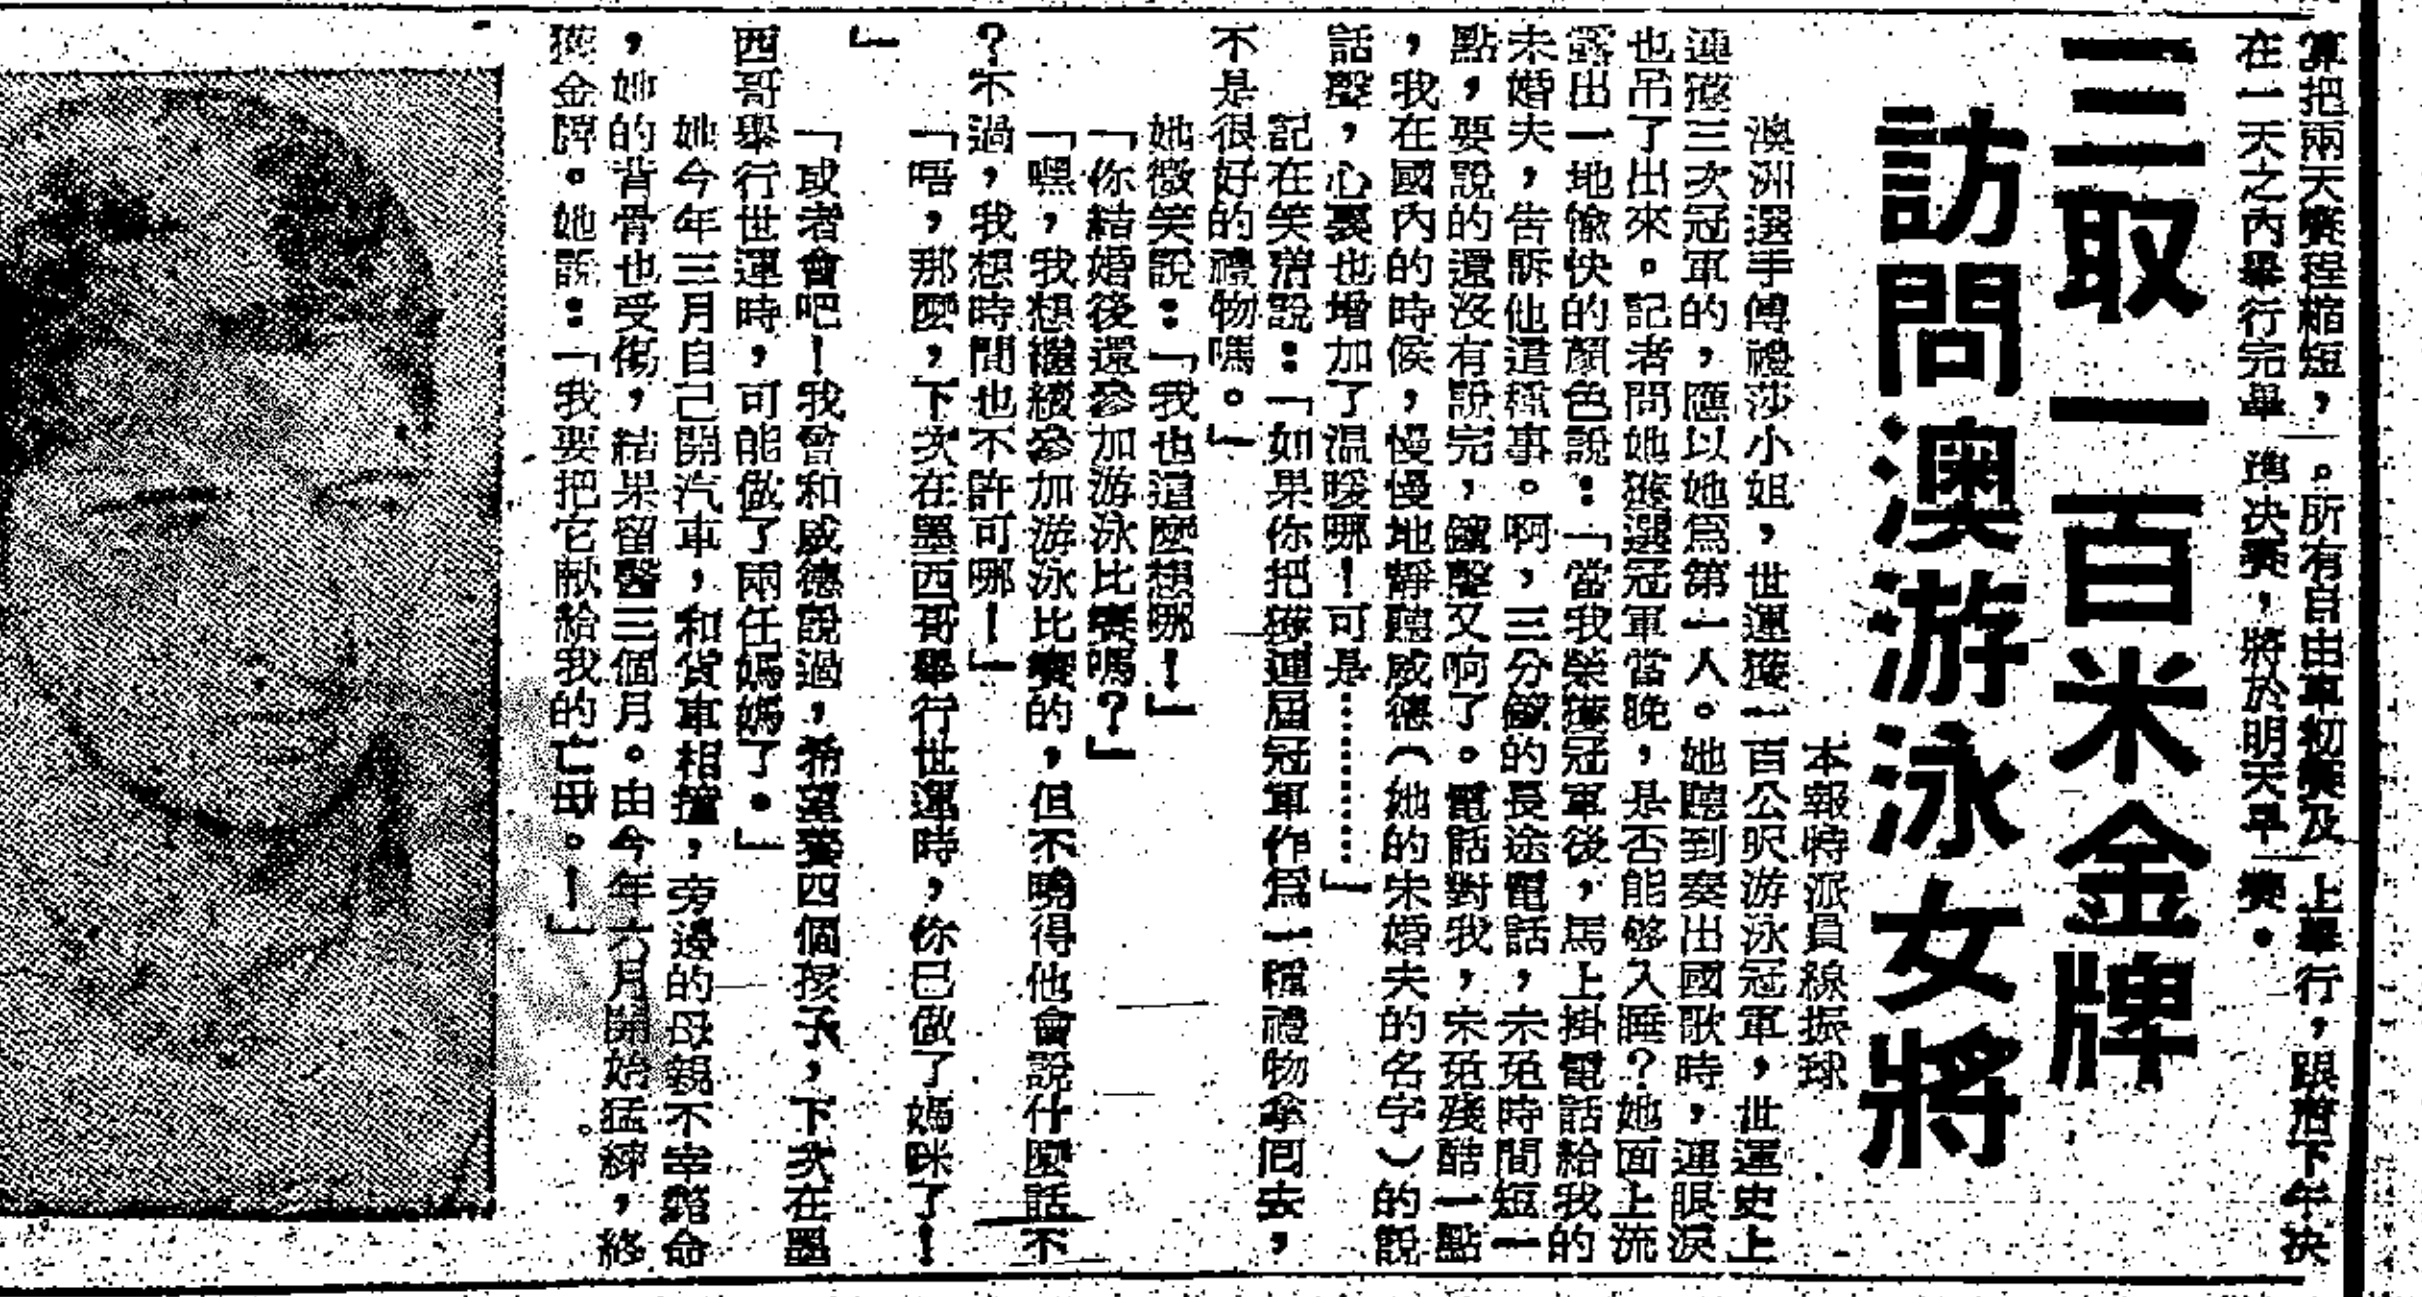 算把兩天賽程縮短，
在一天之內舉行完畢
。所有自由車初賽及
準決賽，將於明天早
上舉行，跟着下午決
賽。
三取一百米金牌
訪問澳游泳女將
本報特派員線振球
澳洲選手傅禮莎小姐，世運獲一百公呎游泳冠軍，世運史上
連獲三次冠軍的，應以她爲第一人。她聽到奏出國歌時，連眼淚
也吊了出來。記者問她獲選冠軍當晚，是否能够入睡？她面上流
露出一地愉快的顏色說：「當我榮獲冠軍後，馬上掛電話給我的
未婚夫，告訴他這種事。啊，三分鐘的長途電話，未免時間短一
點，要說的還沒有說完，鐘聲又响了。電話對我，未免殘酷一點
，我在國內的時候，慢慢地靜聽威德（她的未婚夫的名字）的說
話聲，心裏也增加了温暖哪！可是…………」
記在笑着說：「如果你把獲連屆冠軍作爲一種禮物拿囘去，
不是很好的禮物嗎。」
她微笑說：「我也這麼想哪！」
「你結婚後還參加游泳比賽嗎？」
「嘿，我想繼續參加游泳比賽的，但不曉得他會說什麼話不
？不過，我想時間也不許可哪！」
「唔，那麼，下次在墨西哥舉行世運時，你已做了媽咪了！
」
「或者會吧！我曾和威德說過，希望養四個孩子，下次在墨
西哥舉行世運時，可能做了兩任媽媽了。」
她今年三月自己開汽車，和貨車相撞，旁邊的母親不幸斃命
，她的背骨也受傷，結果留醫三個月。由今年六月開始猛練，終
獲金牌。她說：「我要把它献給我的亡母。！」